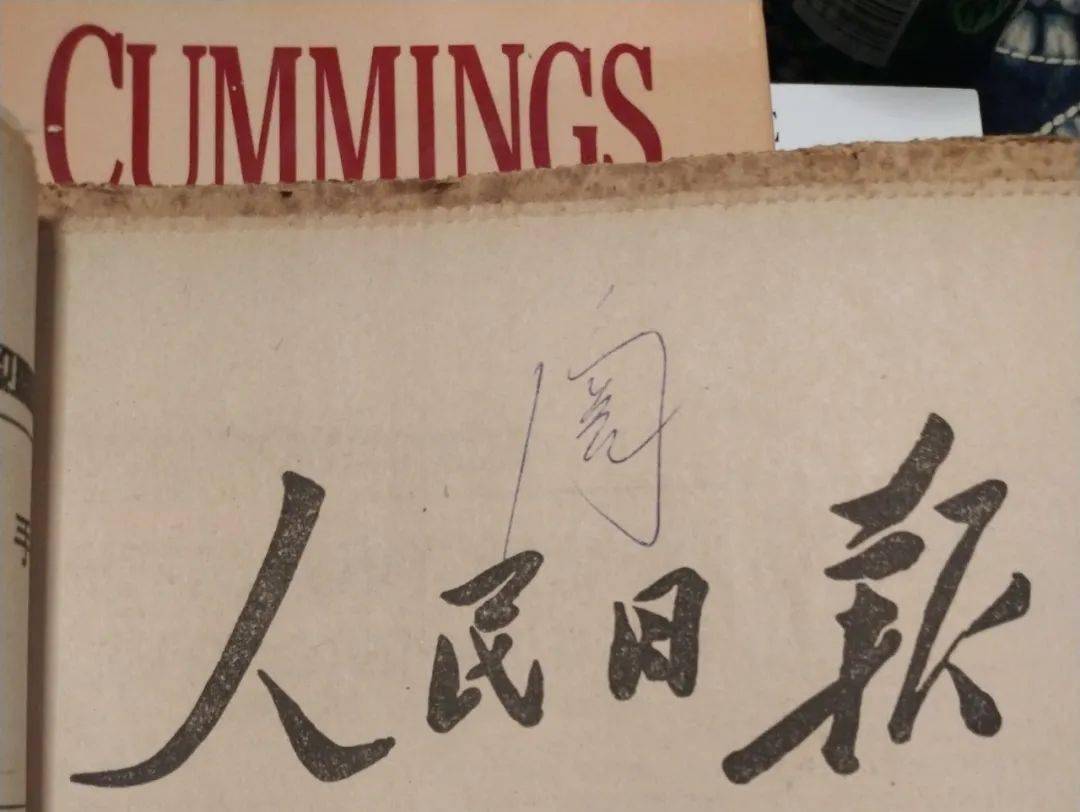 CUMMINGS
人民日报